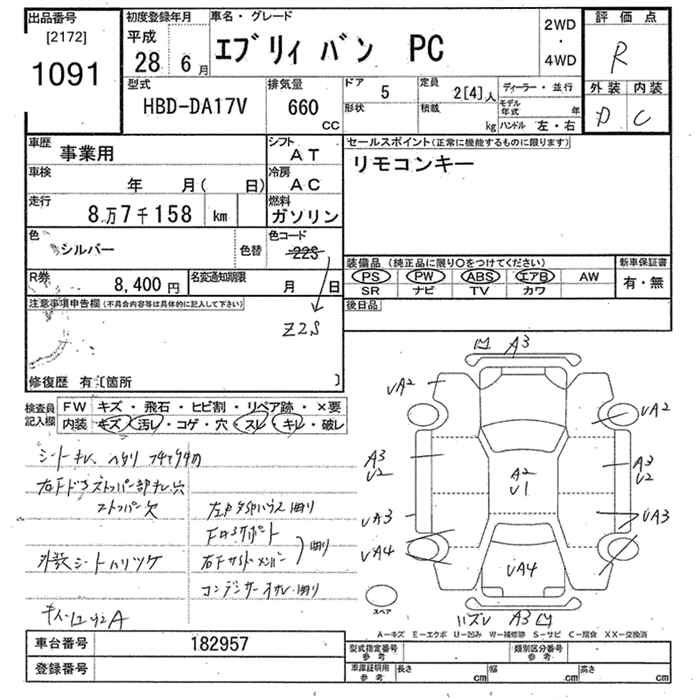 出品番号
[2172]
1091
初度登録年月
平成
28 6月
車名・グレード
エブリィ バン PC
2WD
・
4WD
評価点
R
外装 内装
D C
型式
HBD-DA17V
排気量
660
CC
ドア 5
形状
定員 2[4]人
積載 kg
ディーラー・並行
モデル年式 年
ハンドル 左・右
車歴 事業用
シフト AT
車検 年 月( 日)
冷房 AC
走行 8万7千158 km
燃料 ガソリン
色 シルバー
色替
色コード 22S
R券 8,400円
名変通知期限 月 日
Z2S
セールスポイント(正常に機能するものに限ります)
リモコンキー
装備品(純正品に限り○をつけてください)
PS PW ABS エアB AW
SR ナビ TV カワ
新車保証書
有・無
後日品
注意事項申告欄(不具合内容等は具体的に記入して下さい)
修復歴 有〔箇所 〕
検査員記入欄
FW キズ・飛石・ヒビ割・リペア跡・×要
内装 キズ・汚レ・コゲ・穴・スレ・キレ・破レ
右Fドアストッパー部キレ、穴
ストッパー欠
コンデンサーオサレ・曲り
A3
UA2
UA2
A3
U2
A2
U1
A3
U2
UA3
UA3
UA4
UA4
ハズレ A3
スペア
A-キズ E-エクボ U-凹み W-補修跡 S-サビ C-腐食 XX-交換済
車台番号 182957
登録番号
型式指定番号 参考
類別区分番号 参考
車庫証明用 参考 長さ cm 幅 cm 高さ cm